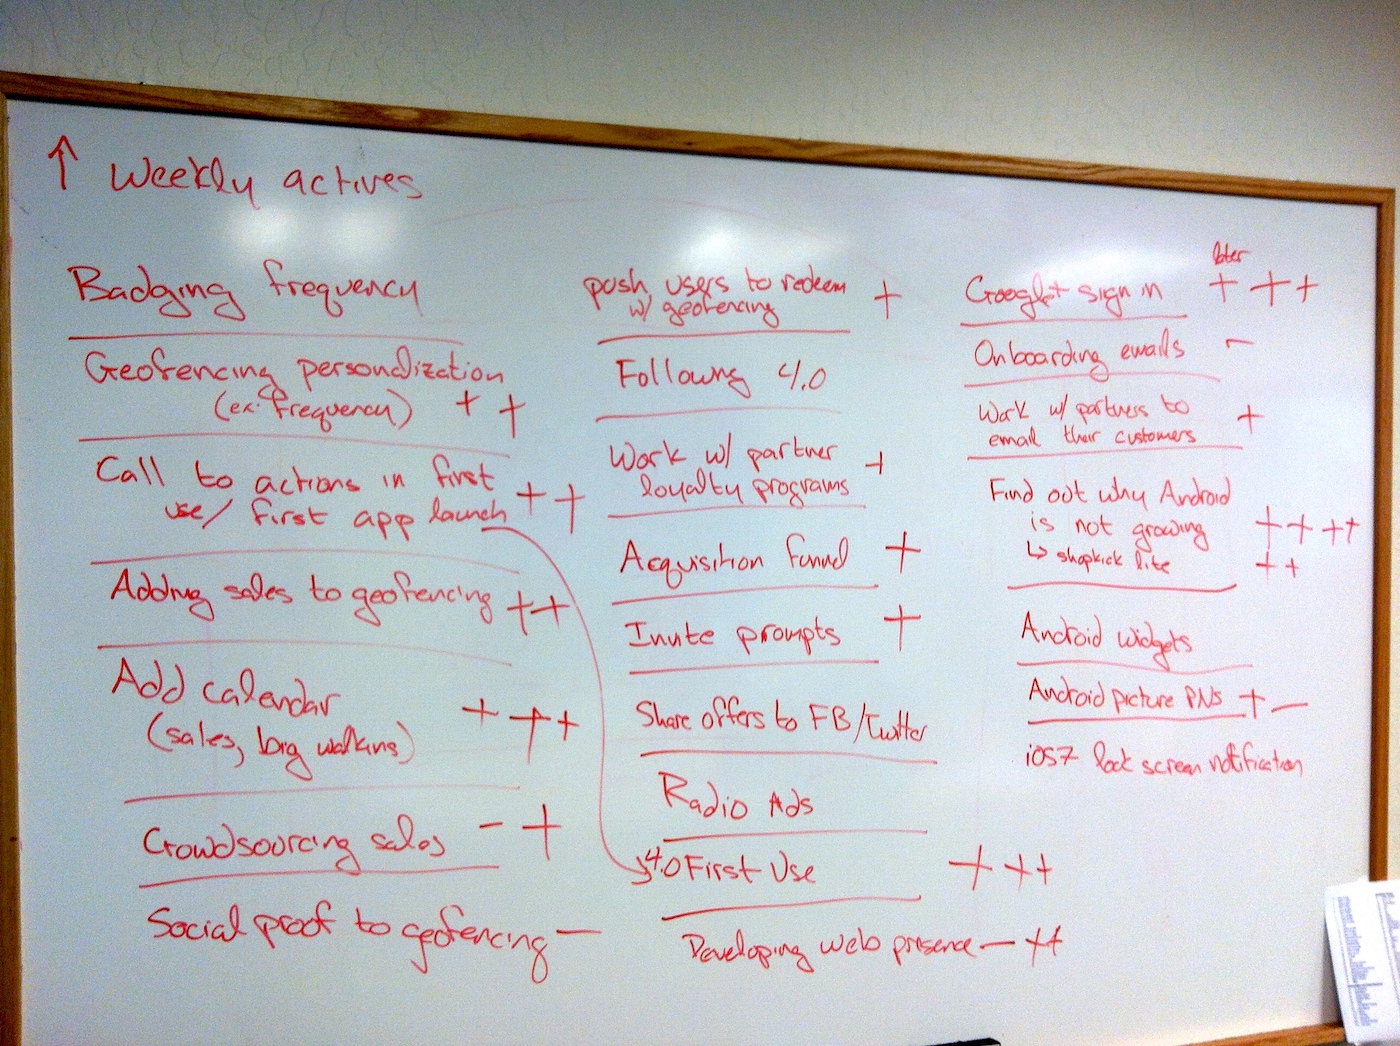 ↑ Weekly actives
Badging frequency
Geofencing personalization
(ex. frequency) + +
Call to actions in first
use/ first app launch + +
Adding sales to geofencing ++
Add calendar
(sales, big walkins) + + +
Crowdsourcing sales - +
Social proof to geofencing —
push users to redeem
w/ geofencing +
Following 4.0
Work w/ partner
loyalty programs +
Acquisition funnel +
Invite prompts +
Share offers to FB/Twitter
Radio Ads
4.0 First Use + ++
Developing web presence — ++
later
Google+ sign in + + +
Onboarding emails -
Work w/ partners to
email their customers +
Find out why Android
is not growing ++ ++
↳ shopkick lite ++
Android widgets
Android picture PNs + —
iOS7 lock screen notification